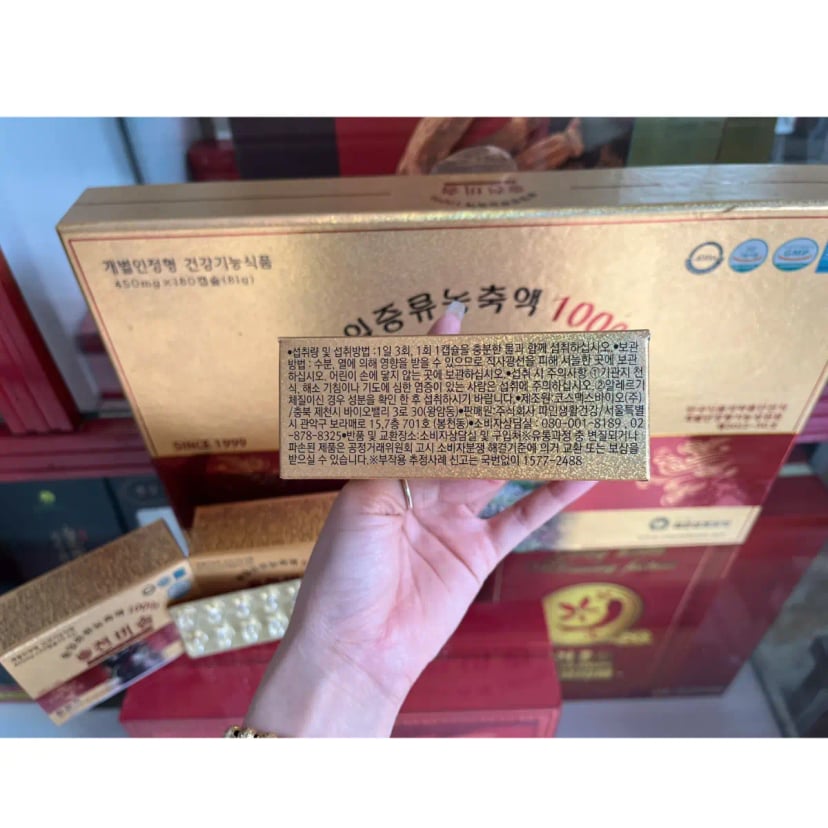 개별인정형 건강기능식품
450mg×180캡슐(81g)
인증류농축액 1000
GMP
•섭취량 및 섭취방법 :1일 3회, 1회 1캡슐을 충분한 물과 함께 섭취하십시오.•보관
방법 : 수분, 열에 의해 영향을 받을 수 있으므로 직사광선을 피해 서늘한 곳에 보관
하십시오. 어린이 손에 닿지 않는 곳에 보관하십시오.•섭취 시 주의사항 ①기관지 천
식, 해소 기침이나 기도에 심한 염증이 있는 사람은 섭취에 주의하십시오. ②알레르기
체질이신 경우 성분을 확인 한 후 섭취하시기 바랍니다.•제조원:코스맥스바이오(주)
/충북 제천시 바이오밸리 3로 30(왕암동)•판매원:주식회사 파민생활건강/서울특별
시 관악구 보라매로 15,7층 701호 (봉천동)•소비자상담실 : 080-001-8189 , 02
-878-8325•반품 및 교환장소:소비자상담실 및 구입처※유통과정 중 변질되거나
파손된 제품은 공정거래위원회 고시 소비자분쟁 해결기준에 의거 교환 또는 보상을
받으실 수 있습니다.※부작용 추정사례 신고는 국번없이 1577-2488
SINCE 1999